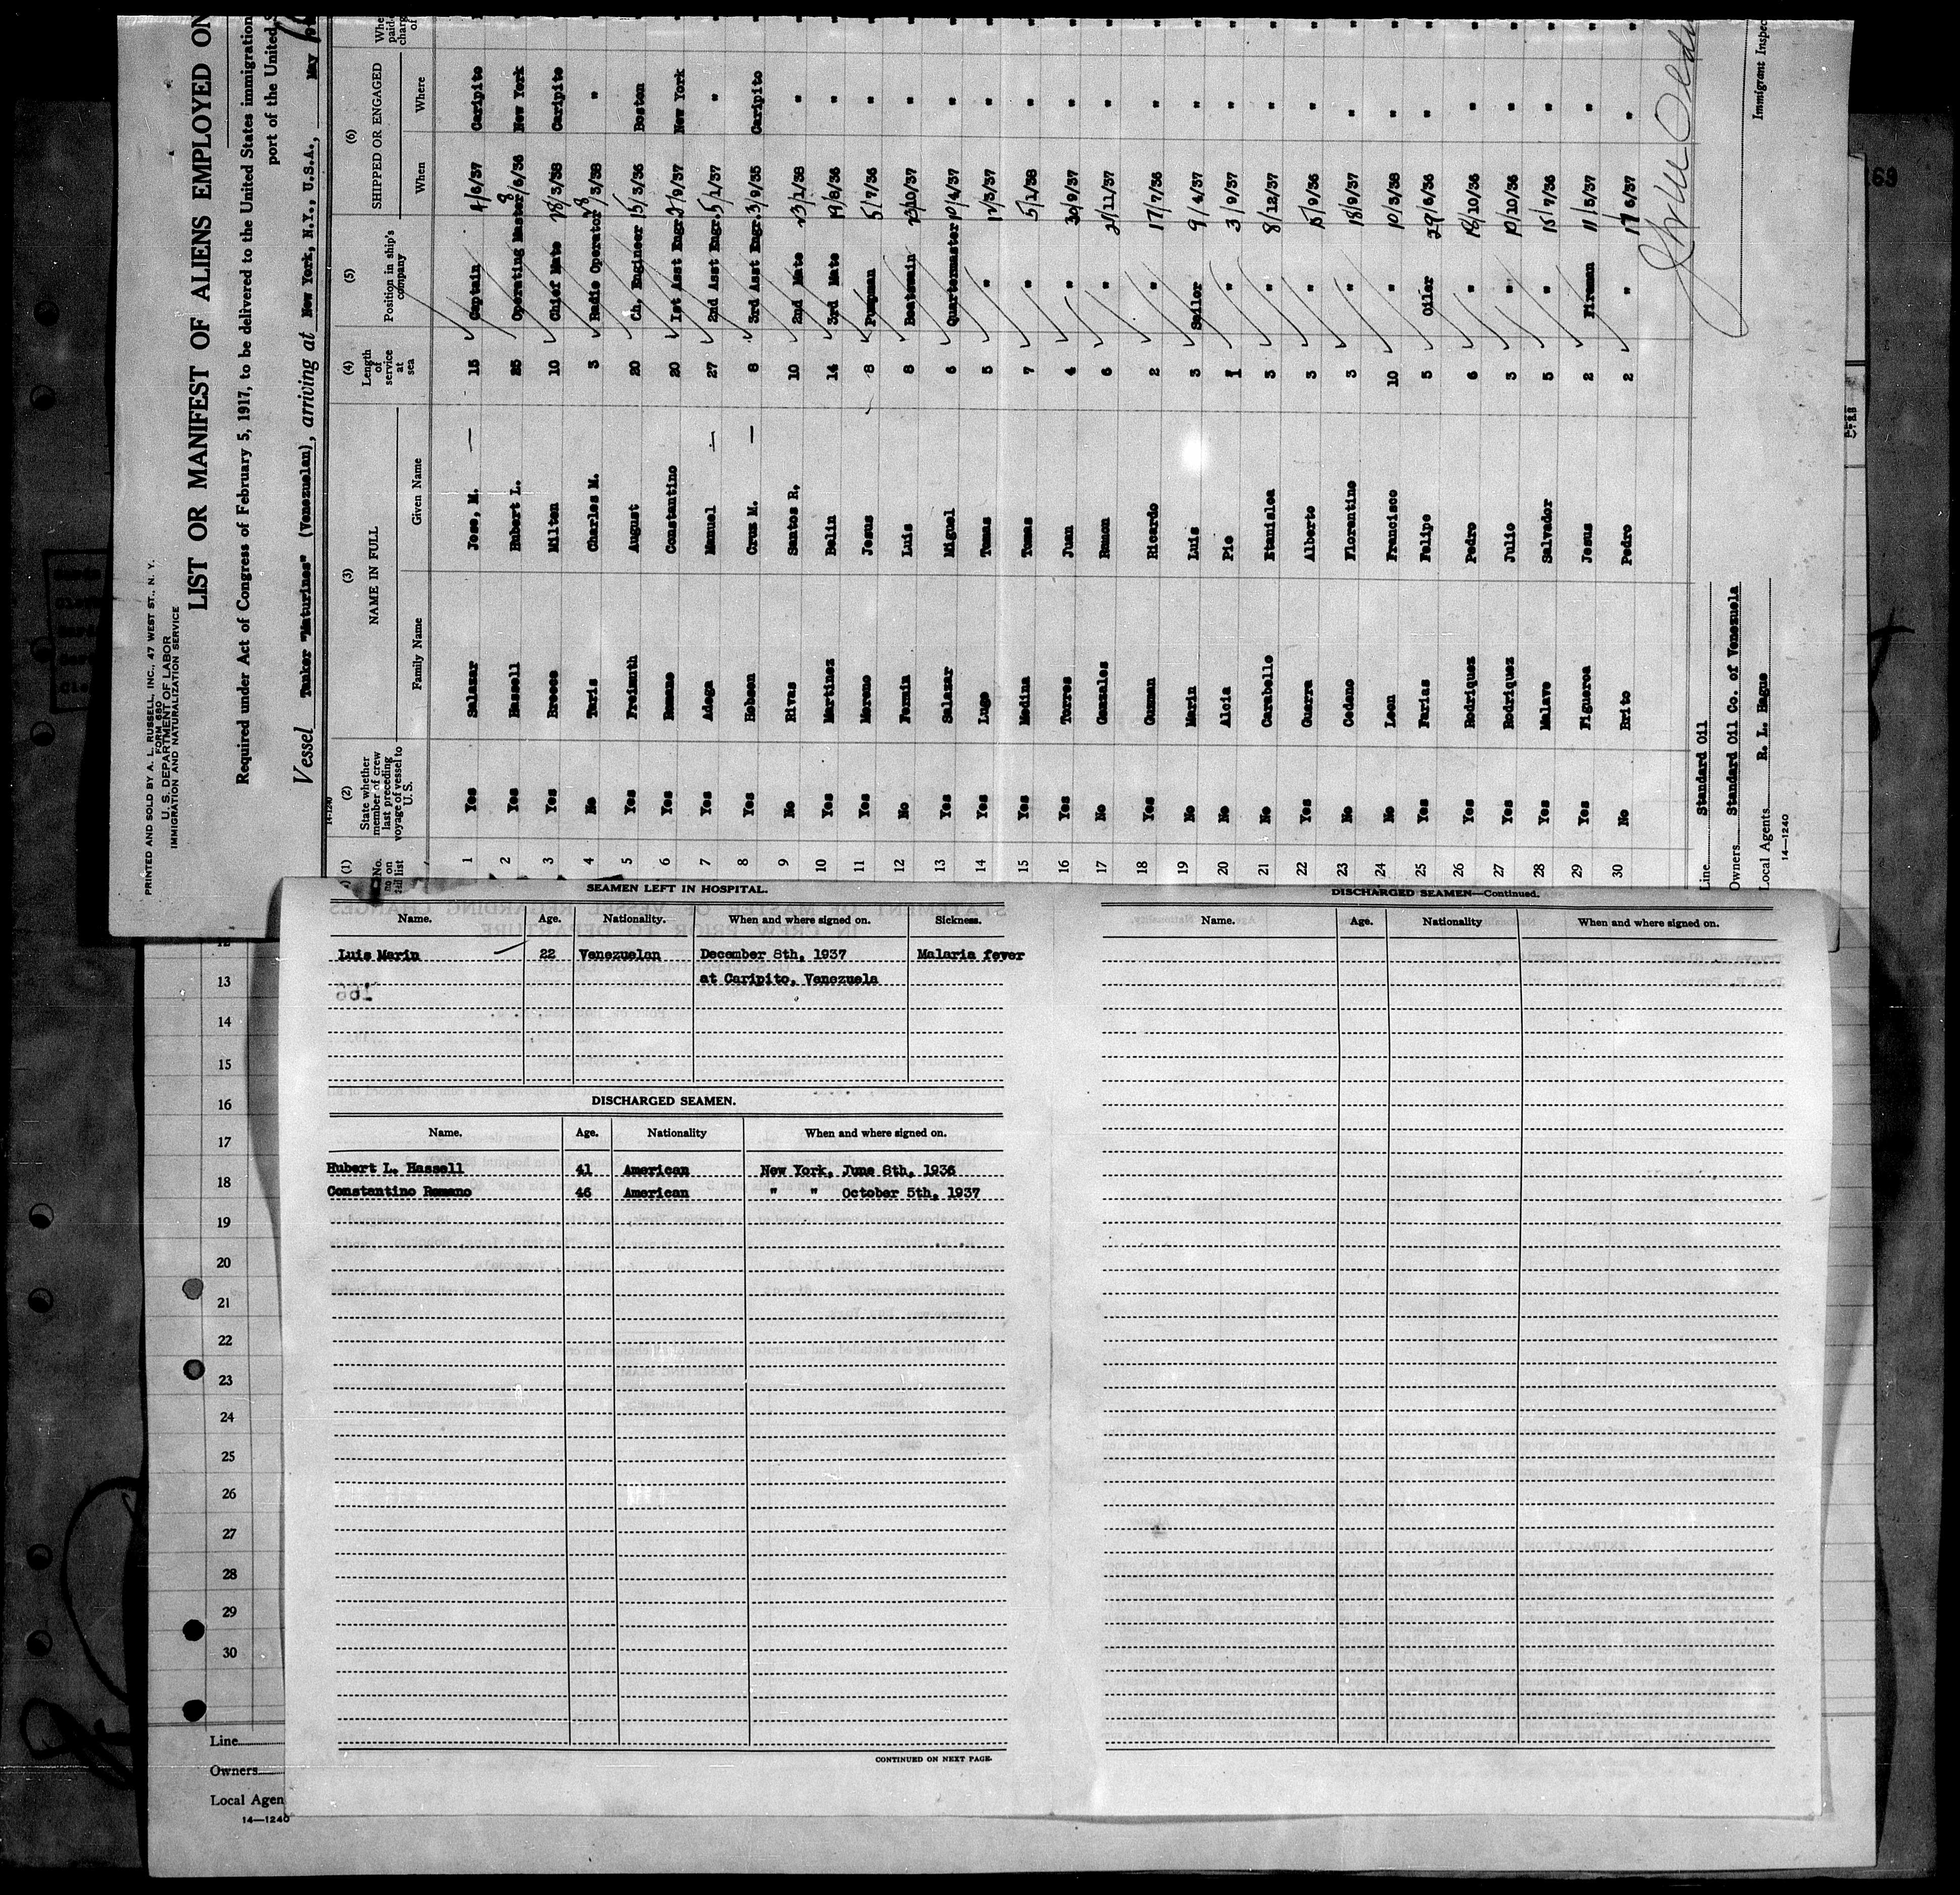 PRINTED AND SOLD BY A. L. RUSSELL, INC., 47 WEST ST., N. Y.
FORM 680
U. S. DEPARTMENT OF LABOR
IMMIGRATION AND NATURALIZATION SERVICE
LIST OR MANIFEST OF ALIENS EMPLOYED ON
Required under Act of Congress of February 5, 1917, to be delivered to the United States immigration
port of the United
Vessel Tanker "Maturines" (Venezuelan), arriving at New York, N.Y., U.S.A., May
14-1240
(1) (2) (3) (4) (5) (6)
No. on list State whether member of crew last preceding voyage of vessel to U. S. NAME IN FULL Length of service at sea Position in ship's company SHIPPED OR ENGAGED
Family Name Given Name When Where
1 Yes Salazar Jose, M. — 15 Captain 4/6/37 Caripito "
2 Yes Hassell Hubert L. 25 Operating Master 8/6/36 New York "
3 Yes Breece Milton 10 Chief Mate 28/3/38 Caripito "
4 No Taris Charles M. 3 Radio Operator 28/3/38 " "
5 Yes Freimuth August 20 Ch. Engineer 15/3/36 Boston "
6 Yes Romano Constantino 20 1st Asst Engr. /9/37 New York "
7 Yes Adega Manuel — 27 2nd Asst Engr. 5/1/37 " "
8 Yes Hobson Cruz M. — 8 3rd Asst Engr. 3/9/35 Caripito "
9 No Rivas Santos R, 10 2nd Mate 13/1/38 " "
10 Yes Martinez Belin 14 3rd Mate 19/8/36 " "
11 Yes Moreno Jesus 8 Pumpman 5/7/36 " "
12 No Fermin Luis 8 Boatswain /10/37 " "
13 Yes Salazar Miguel 6 Quartermaster 10/4/37 " "
14 Yes Lugo Tomas 5 " 12/3/37 " "
15 Yes Medina Tomas 7 " 5/1/38 " "
16 Yes Torres Juan 4 " 30/9/37 " "
17 No Gonzales Ramon 6 " 2/11/37 " "
18 Yes Guzman Ricardo 2 " 17/7/36 " "
19 No Marin Luis 3 Sailor 9/4/37 " "
20 No Alcia Pio 1 " 3/9/37 " "
21 No Carabello Etanisloa 3 " 8/12/37 " "
22 Yes Guerra Alberto 3 " 15/9/36 " "
23 No Cedeno Florentino 3 " 18/9/37 " "
24 No Leon Francisco 10 " 10/3/38 " "
25 Yes Farias Felipe 5 Oiler 29/6/36 " "
26 Yes Rodriquez Pedro 6 " 18/10/36 " "
27 Yes Rodriquez Julio 3 " 19/10/36 " "
28 Yes Malave Salvador 5 " 15/7/36 " "
29 Yes Figueroa Jesus 2 Fireman 11/3/37 " "
30 No Brito Pedro 2 " 17/6/37 " "
Line Standard Oil
Owners Standard Oil Co. of Venezuela
Local Agents R. L. Hague
14—1240
Immigrant Inspec
SEAMEN LEFT IN HOSPITAL.
Name. Age. Nationality. When and where signed on. Sickness.
Luis Marin 22 Venezuelan December 8th, 1937 Malaria fever
at Caripito, Venezuela
DISCHARGED SEAMEN.
Name. Age. Nationality When and where signed on.
Hubert L. Hassell 41 American New York, June 8th, 1936
Constantino Romano 46 American " " October 5th, 1937
CONTINUED ON NEXT PAGE.
DISCHARGED SEAMEN—Continued.
Name. Age. Nationality When and where signed on.
12
13
14
15
16
17
18
19
20
21
22
23
24
25
26
27
28
29
30
Line
Owners
Local Agen
14—1240